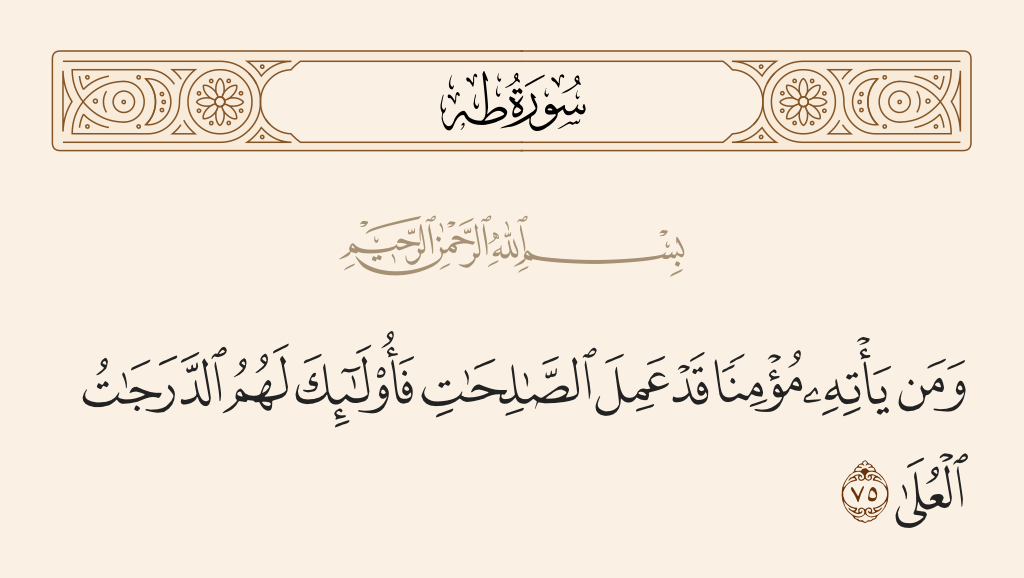 سُورَةُ طه
بِسْمِ ٱللَّهِ ٱلرَّحْمَٰنِ ٱلرَّحِيمِ
وَمَن يَأْتِهِۦ مُؤْمِنًا قَدْ عَمِلَ ٱلصَّٰلِحَٰتِ فَأُو۟لَٰٓئِكَ لَهُمُ ٱلدَّرَجَٰتُ
ٱلْعُلَىٰ ٧٥